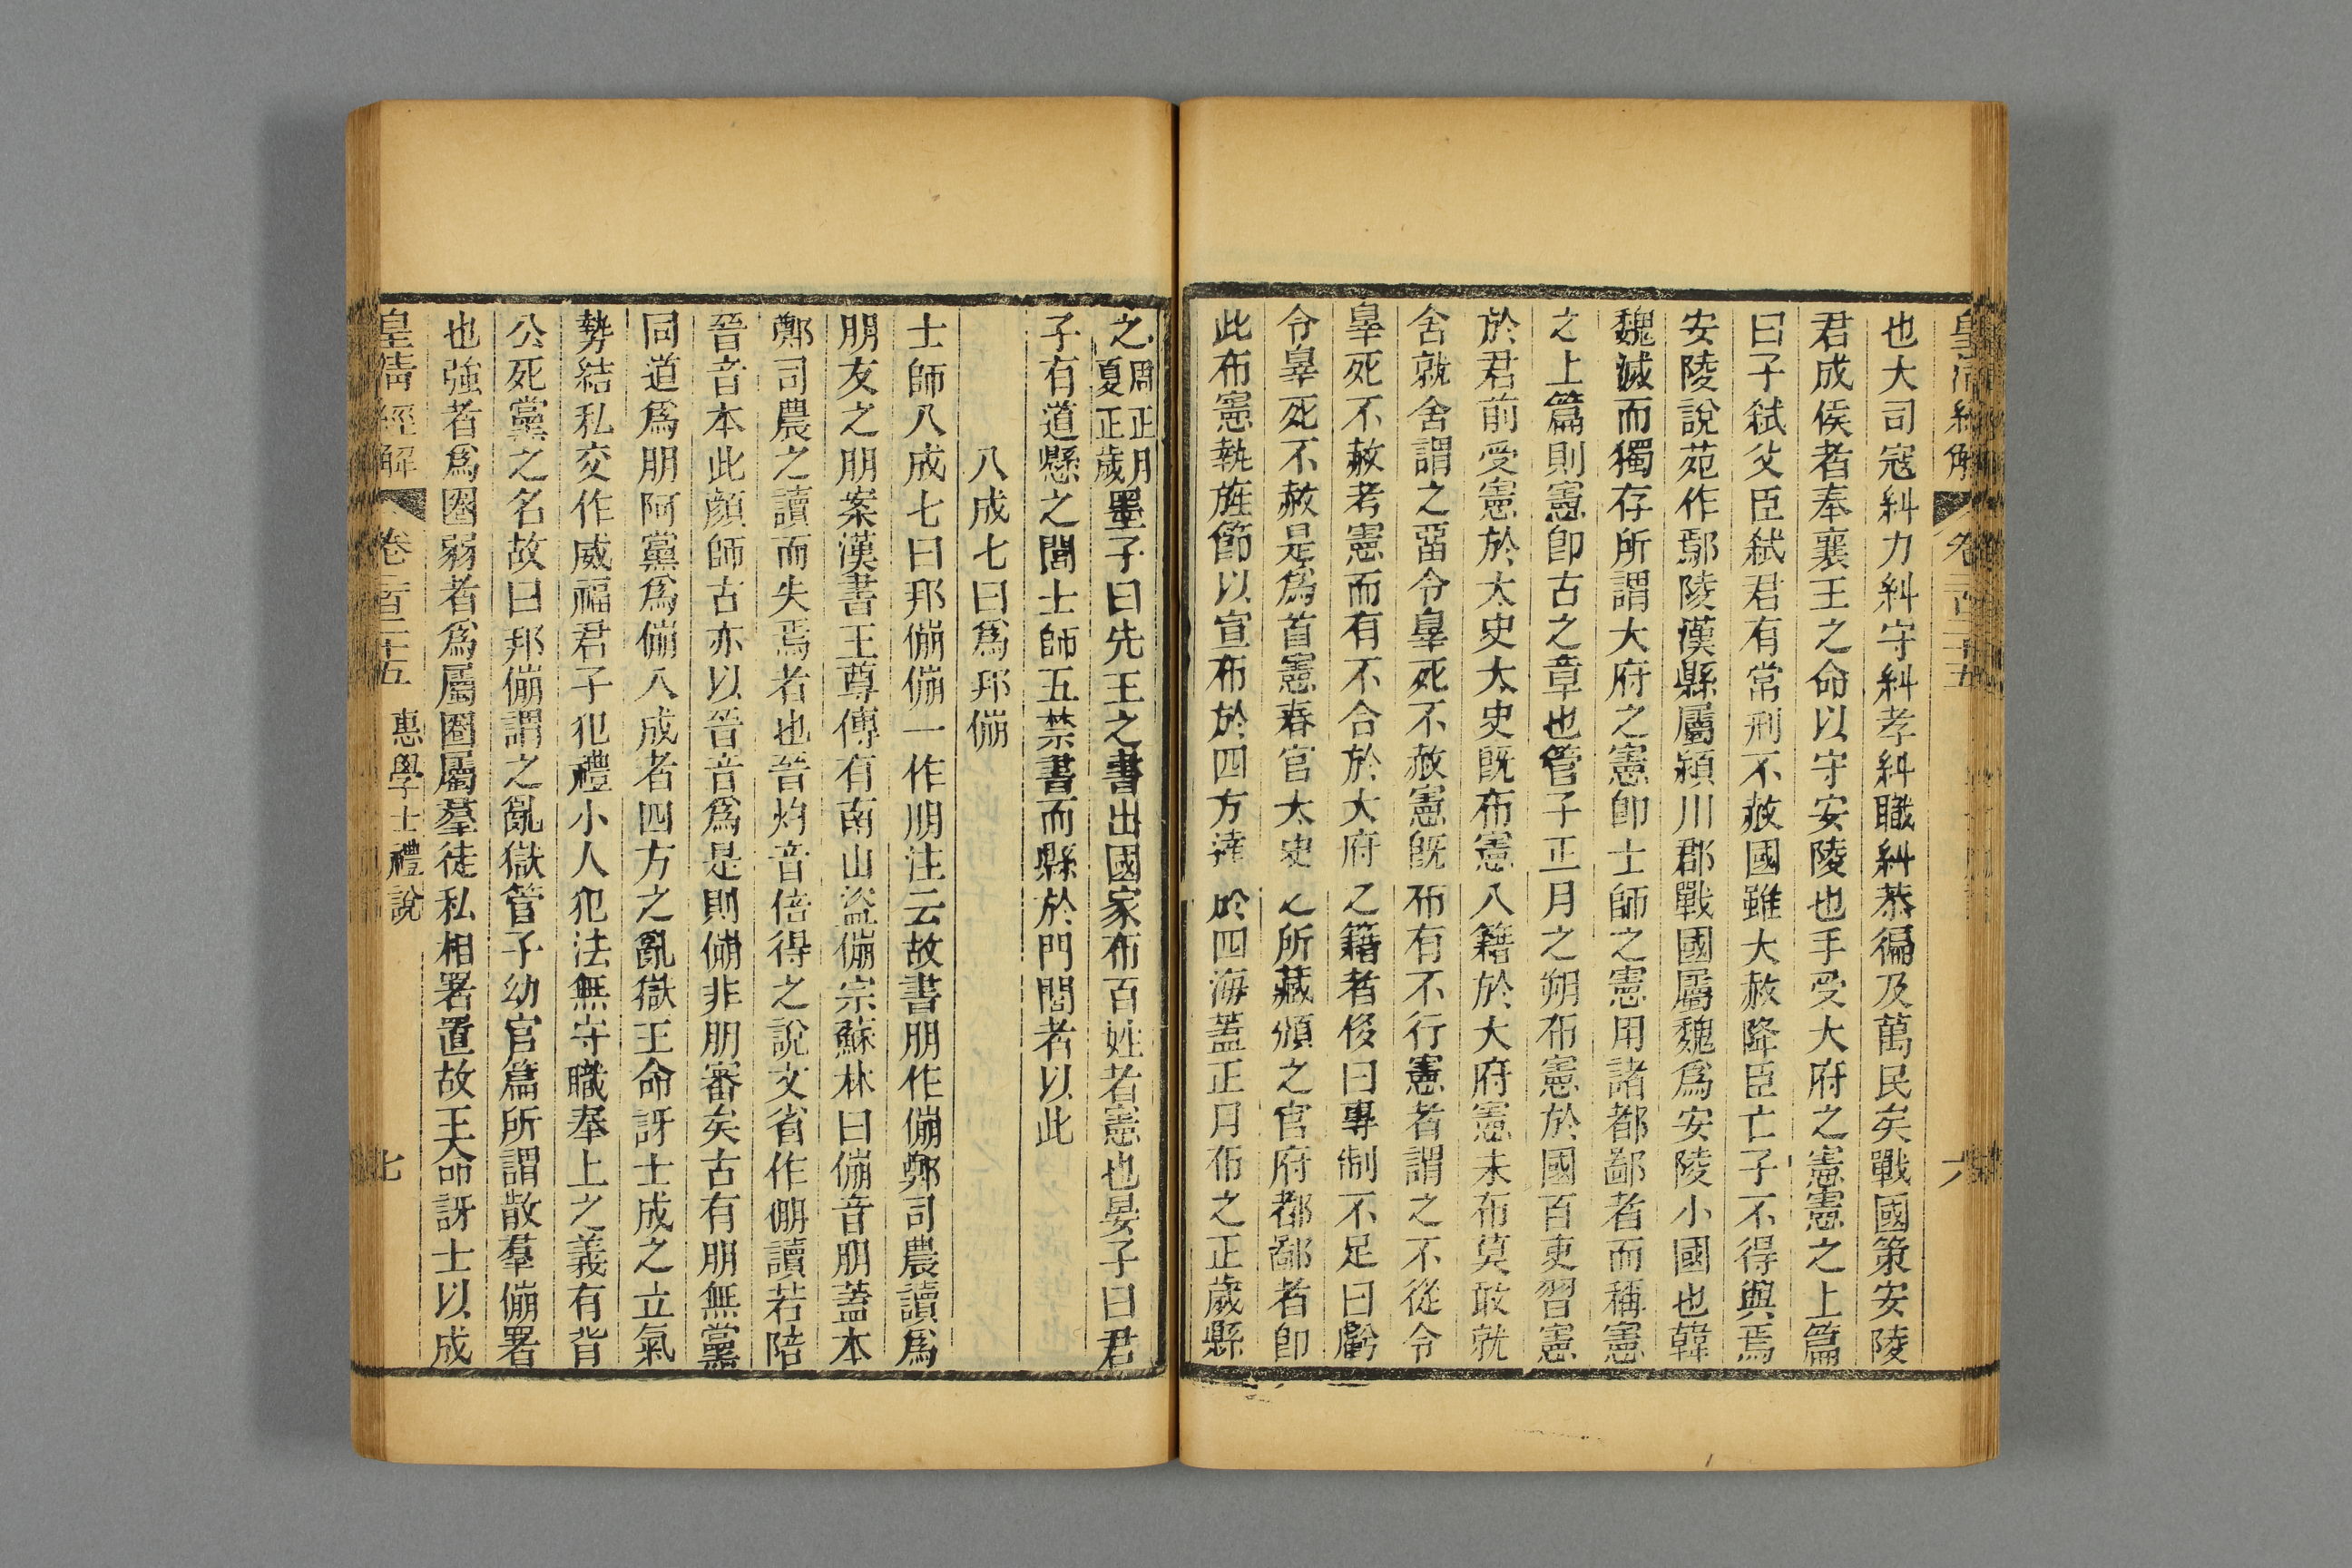 皇清經解 卷二百二十五 六
也大司寇糾力糾守糾孝糾職糾恭徧及萬民矣戰國策安陵
君成侯者奉襄王之命以守安陵也手受大府之憲憲之上篇
曰子弑父臣弑君有常刑不赦國雖大赦降臣亡子不得與焉
安陵說苑作鄢陵漢縣屬潁川郡戰國屬魏爲安陵小國也韓
魏滅而獨存所謂大府之憲卽士師之憲用諸都鄙者而稱憲
之上篇則憲卽古之章也管子正月之朔布憲於國百吏習憲
於君前受憲於太史大史旣布憲入籍於大府憲未布莫敢就
舍就舍謂之畱令辠死不赦憲旣布有不行憲者謂之不從令
辠死不赦考憲而有不合於大府之籍者侈曰專制不足曰虧
令辠死不赦是爲首憲春官太史之所藏頒之官府都鄙者卽
此布憲執旌節以宣布於四方達於四海蓋正月布之正歲縣
之周正月夏正歲墨子曰先王之書出國家布百姓者憲也晏子曰君
子有道懸之閭士師五禁書而縣於門閭者以此
八成七曰爲邦傰
士師八成七曰邦傰傰一作朋注云故書朋作傰鄭司農讀爲
朋友之朋案漢書王尊傳有南山盜傰宗蘇林曰傰音朋蓋本
鄭司農之讀而失焉者也晉灼音倍得之說文省作倗讀若陪
晉音本此顏師古亦以晉音爲是則傰非朋審矣古有朋無黨
同道爲朋阿黨爲傰八成者四方之亂獄王命訝士成之立氣
勢結私交作威福君子犯禮小人犯法無守職奉上之義有背
公死黨之名故曰邦傰謂之亂獄管子幼官篇所謂散羣傰署
也強者爲圈弱者爲屬圈屬羣徒私相署置故天王命訝士以成
皇清經解 卷二百二十五 惠學士禮說 七